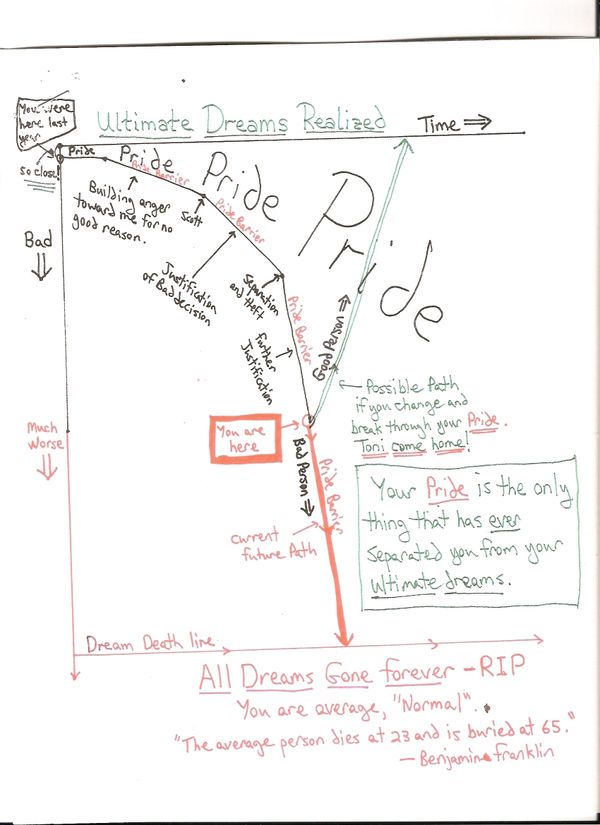 You were
here last
year
Ultimate Dreams Realized
Time ⇒
so close!
Pride
Pride
Pride
Pride
Pride Barrier
Pride Barrier
Building anger
toward me for no
good reason.
Scott
Bad
Justification
of Bad decision
Separation
and theft
Pride Barrier
further
Justification
Good Person
Possible Path
if you change and
break through your Pride.
Toni come home!
Much
Worse
You are
here
Bad Person
Pride Barrier
current
future Path
Your Pride is the only
thing that has ever
separated you from your
ultimate dreams.
Dream Death line
All Dreams Gone forever - RIP
You are average, "Normal".
"The average person dies at 23 and is buried at 65."
- Benjamin Franklin